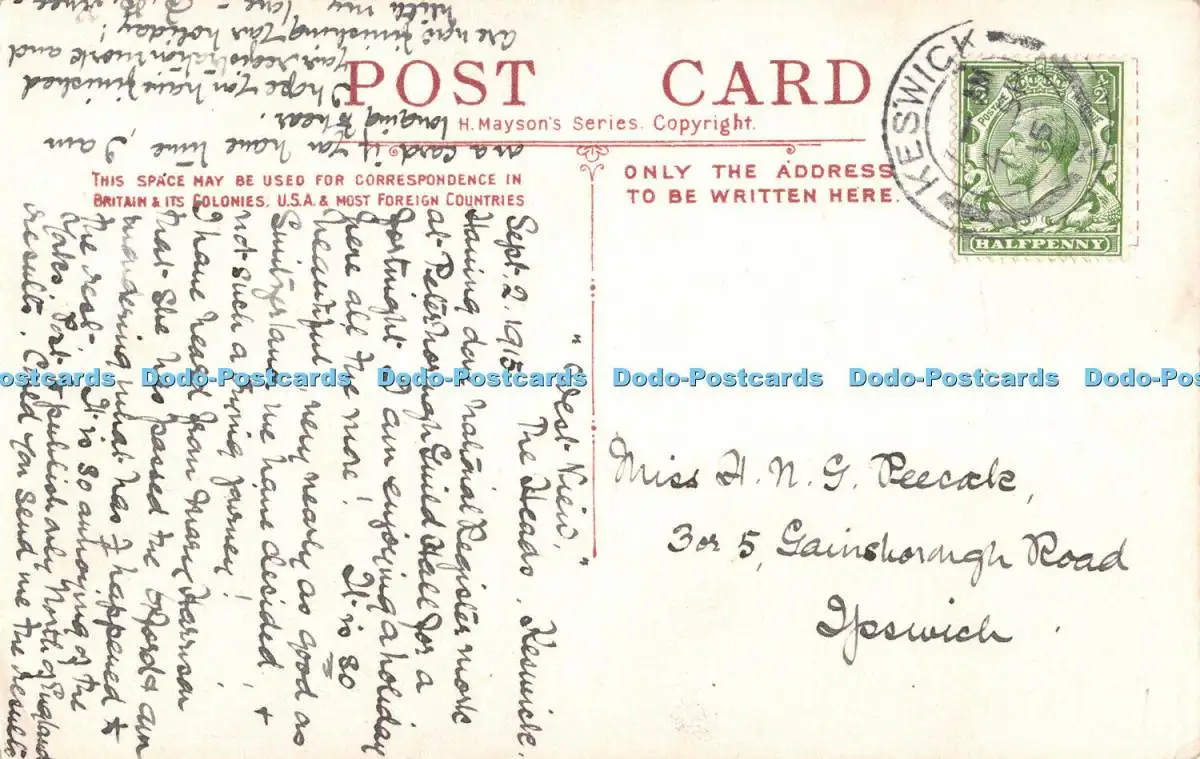 POST CARD
H. Mayson's Series. Copyright.
THIS SPACE MAY BE USED FOR CORRESPONDENCE IN
BRITAIN & ITS COLONIES, U.S.A. & MOST FOREIGN COUNTRIES
ONLY THE ADDRESS
TO BE WRITTEN HERE.
KESWICK
POSTAGE
HALFPENNY
"West View,"
Sept. 2. 1915 The Heads, Keswick.
Having done National Register work
at Peterborough Guild Hall for a
fortnight I am enjoying a holiday
here all the more! It is so
beautiful, very nearly as good as
Switzerland we have decided &
not such a tiring journey!
I have heard from Mary Harrison
that she has passed the Oxford & am
wondering what has happened to
the rest. It is so annoying of the
Yorks. Post to publish only North of England
results. Could you send me the results
on a card if you have time, I am
longing to hear.
I hope you have finished
your registration work and
are now finishing your holiday!
With my love
Miss H. N. G. Peecock,
3 or 5, Gainsborough Road
Ipswich.
Dodo-Postcards Dodo-Postcards Dodo-Postcards Dodo-Postcards Dodo-Postcards